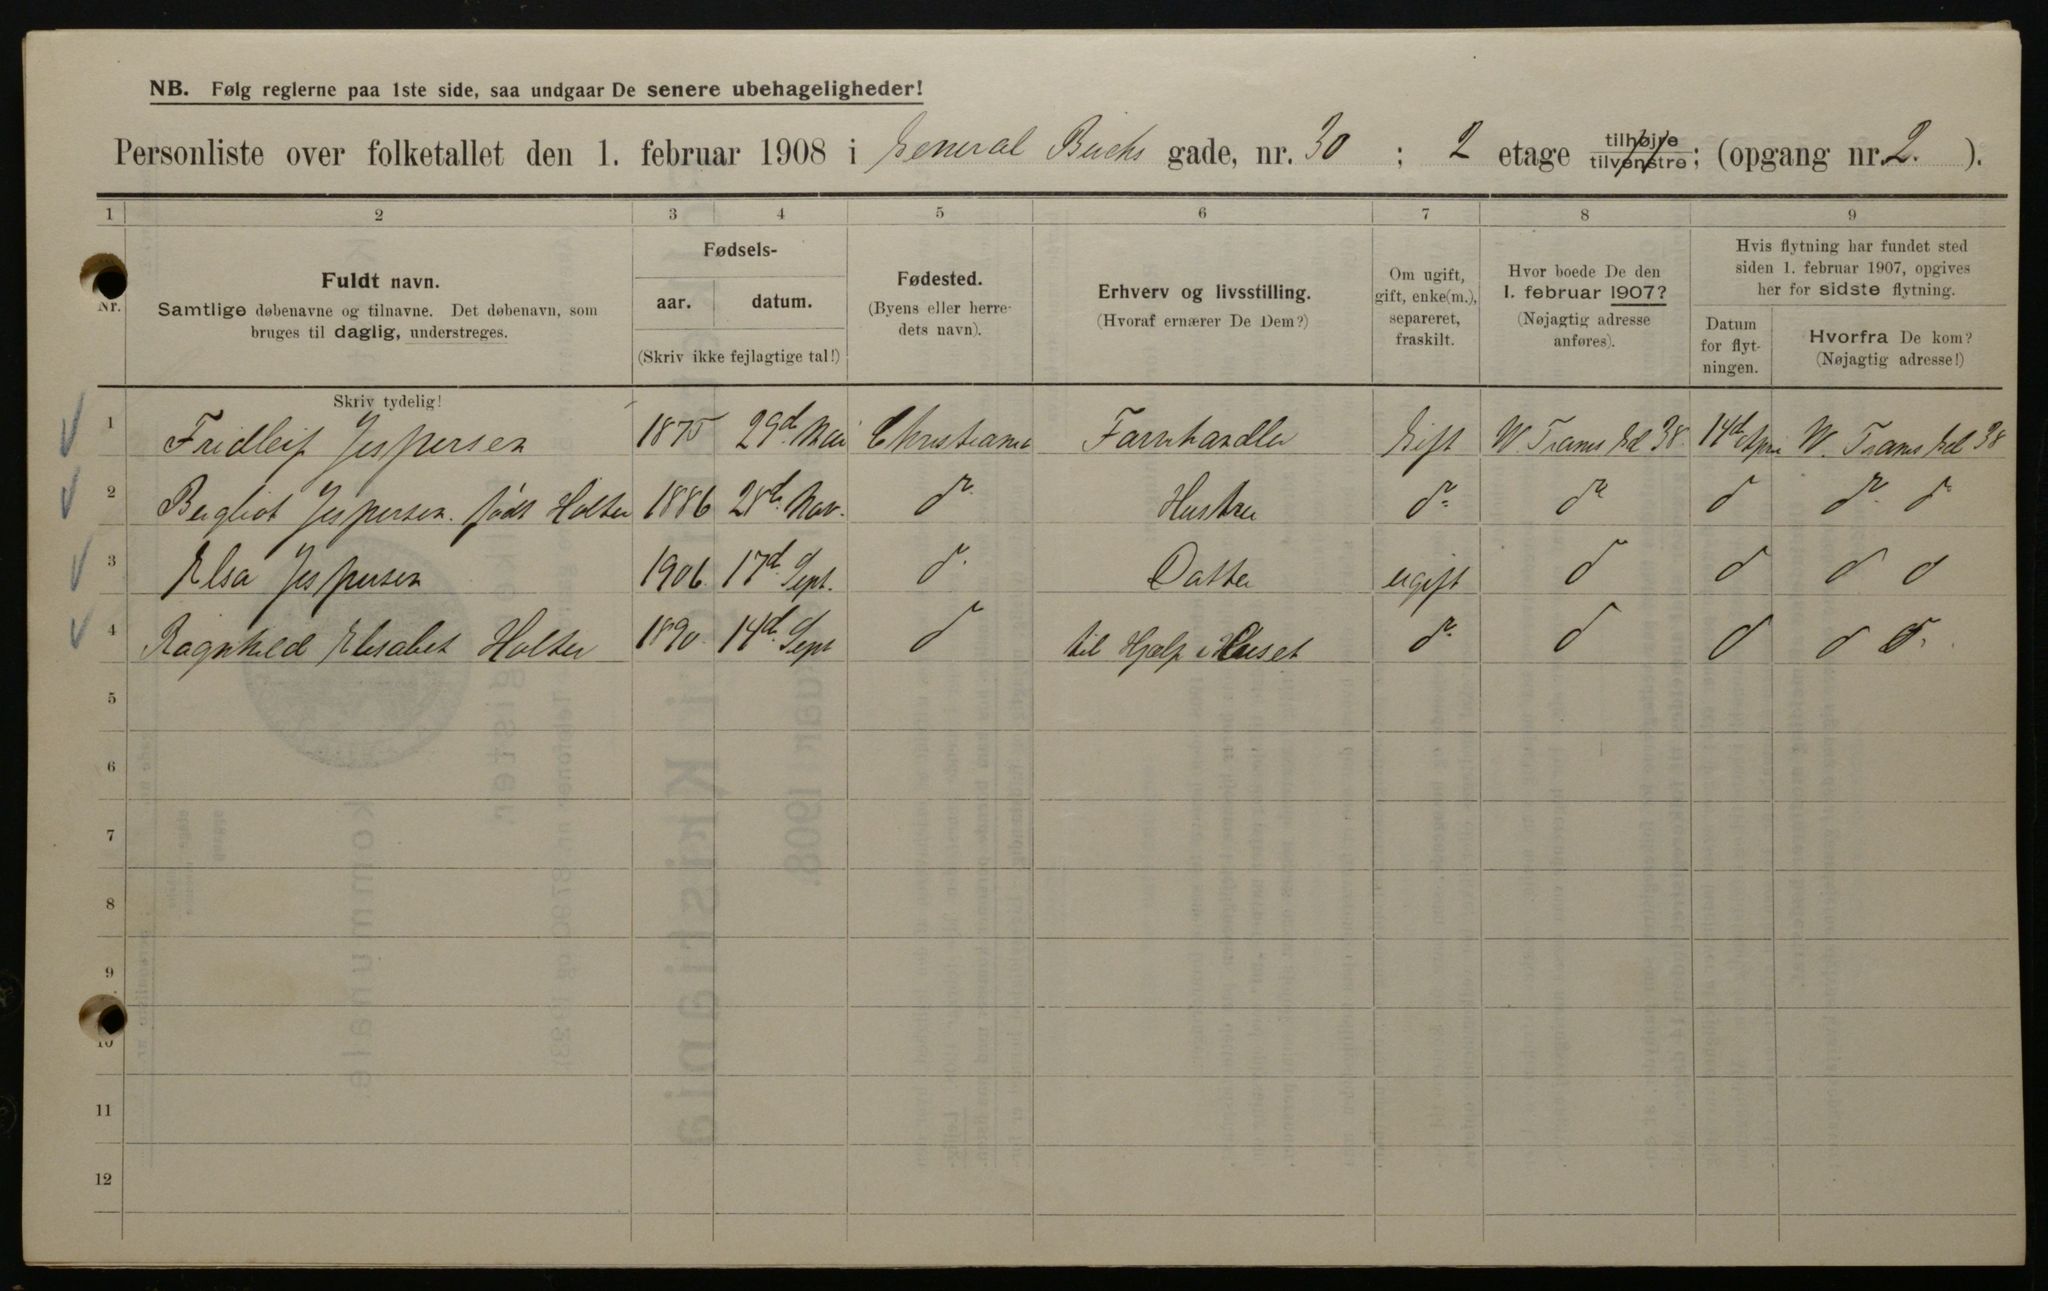 NB. Følg reglerne paa 1ste side, saa undgaar De senere ubehageligheder!
Personliste over folketallet den 1. februar 1908 i General Birchs gade, nr. 30 ; 2 etage tilhøjre tilvenstre; (opgang nr. 2. ).
1 2 3 4 5 6 7 8 9
Nr.
Fuldt navn.
Samtlige døbenavne og tilnavne. Det døbenavn, som
bruges til daglig, understreges.
Skriv tydelig!
Fødsels-
aar. datum.
(Skriv ikke fejlagtige tal!)
Fødested.
(Byens eller herre-
dets navn).
Erhverv og livsstilling.
(Hvoraf ernærer De Dem?)
Om ugift,
gift, enke(m.),
separeret,
fraskilt.
Hvor boede De den
1. februar 1907?
(Nøjagtig adresse
anføres).
Hvis flytning har fundet sted
siden 1. februar 1907, opgives
her for sidste flytning.
Datum
for flyt-
ningen.
Hvorfra De kom?
(Nøjagtig adresse!)
1 Fridleif Jespersen 1875 29d. Mai Christiania Farvehandler Gift W. Trams Gd 38. 14d April W. Trams Gd 38
2 Bergliot Jespersen. født Holter 1886 28d. Nov. do. Hustru do. do d do. d
3 Elsa Jespersen 1906. 17d. Sept. d. Datter ugift d d d d
4 Ragnhild Elisabet Holter 1890. 14d. Sept d til Hjælp i Huset do. d d d d.
5
6
7
8
9
10
11
12